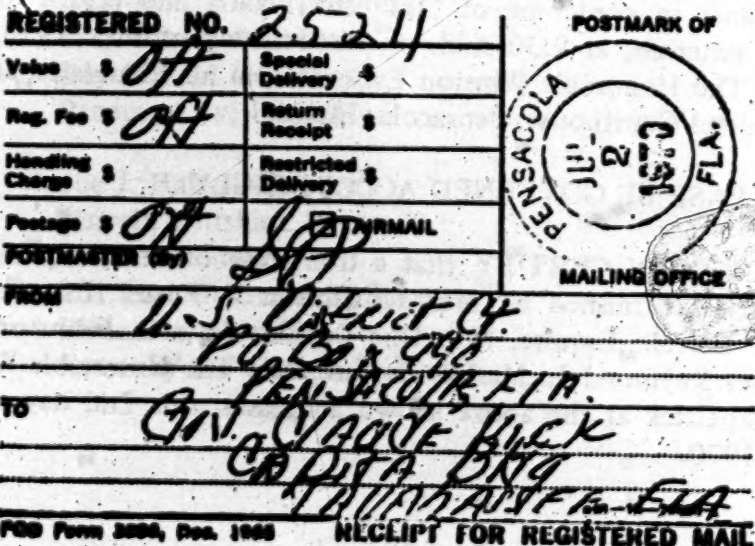 REGISTERED NO. 25211
POSTMARK OF
Value $ Off
Special Delivery $
Reg. Fee $ Off
Return Receipt $
Handling Charge $
Restricted Delivery $
Postage $ Off
AIRMAIL
POSTMASTER (By)
PENSACOLA FLA.
2
MAILING OFFICE
FROM
U.S. District Ct.
P.O. Box
PENSACOLA, FLA.
TO
Gov. CLAUDE KIRK
CAPITA BLDG
TALLAHASSEE FLA
POD Form Dec. 1965 RECEIPT FOR REGISTERED MAIL